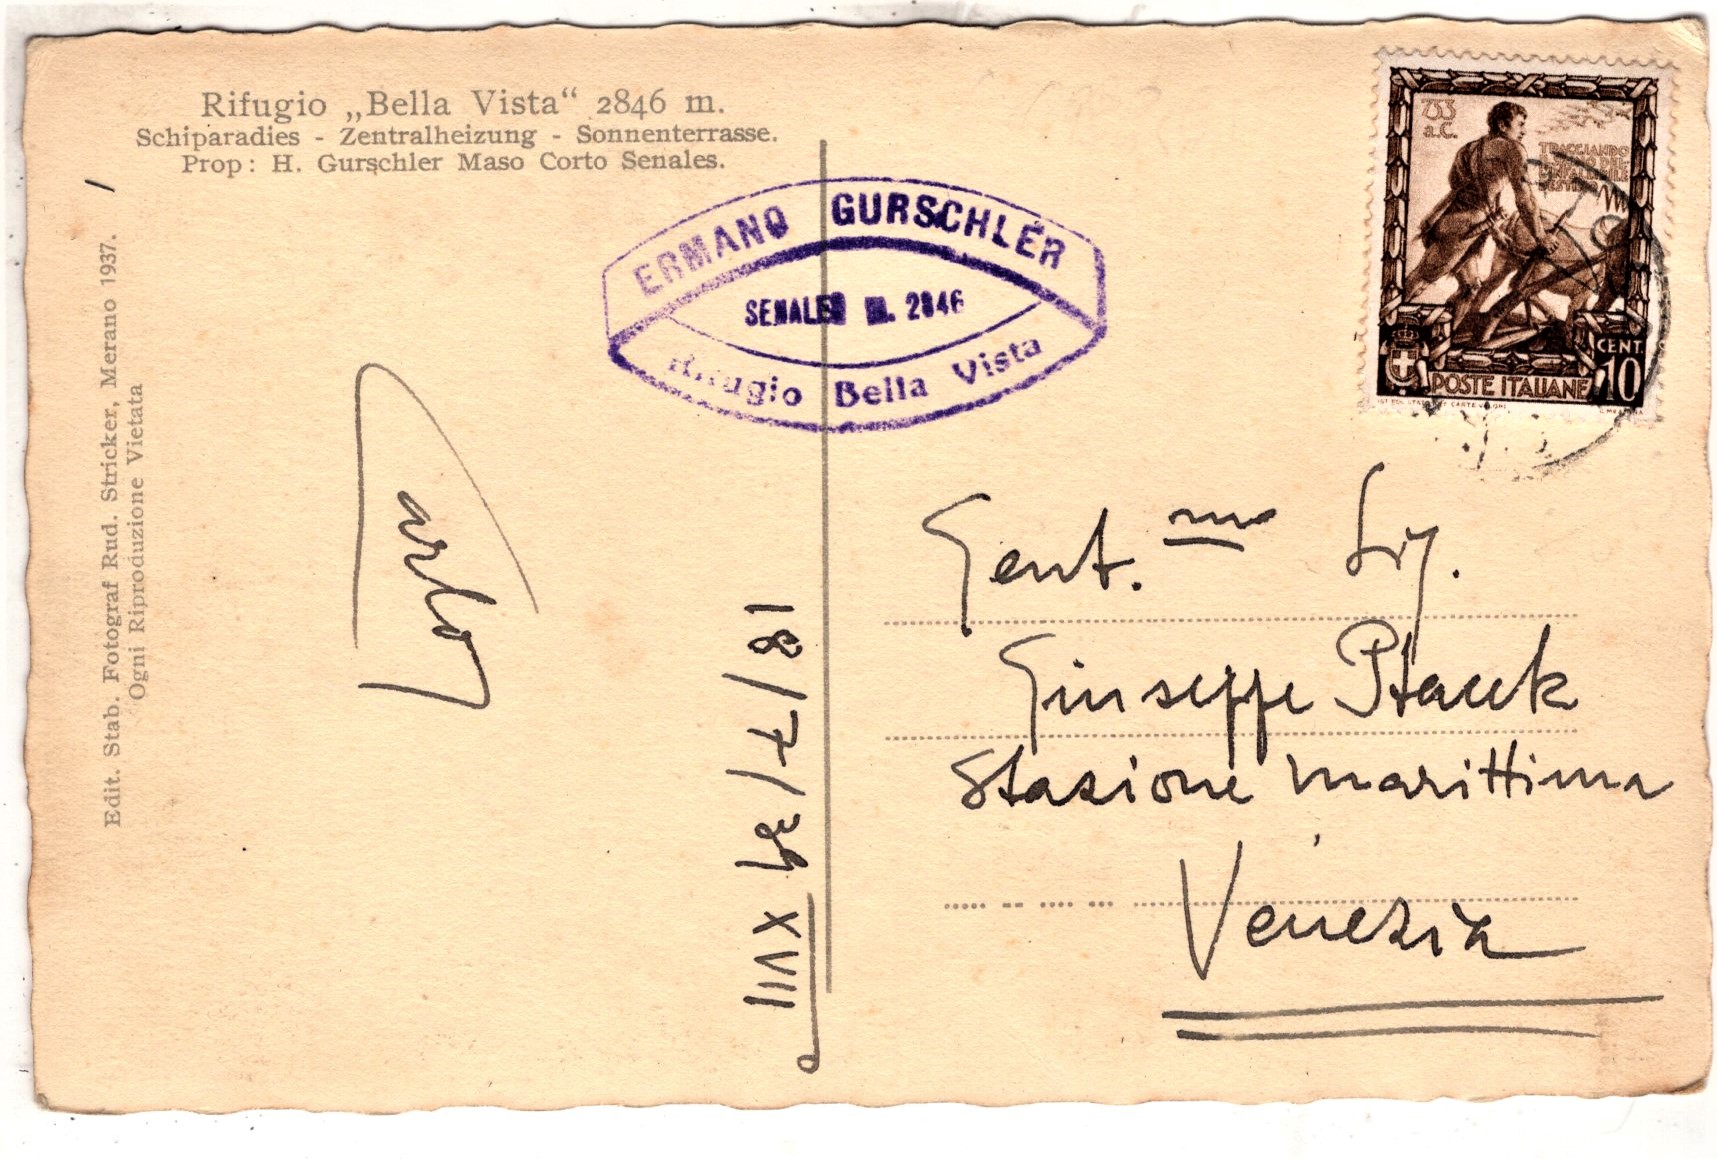 Rifugio „Bella Vista“ 2846 m.
Schiparadies - Zentralheizung - Sonnenterrasse.
Prop: H. Gurschler Maso Corto Senales.
Edit. Stab. Fotograf Rud. Stricker, Merano 1937.
Ogni Riproduzione Vietata
ERMANO GURSCHLER
SENALES m. 2846
Rifugio Bella Vista
753
a.C.
TRACCIANDO
CENT.
POSTE ITALIANE 10
Carlo
18/7/39 XVII
Gent.mo Sig.
Giuseppe
Stazione marittima
Venezia